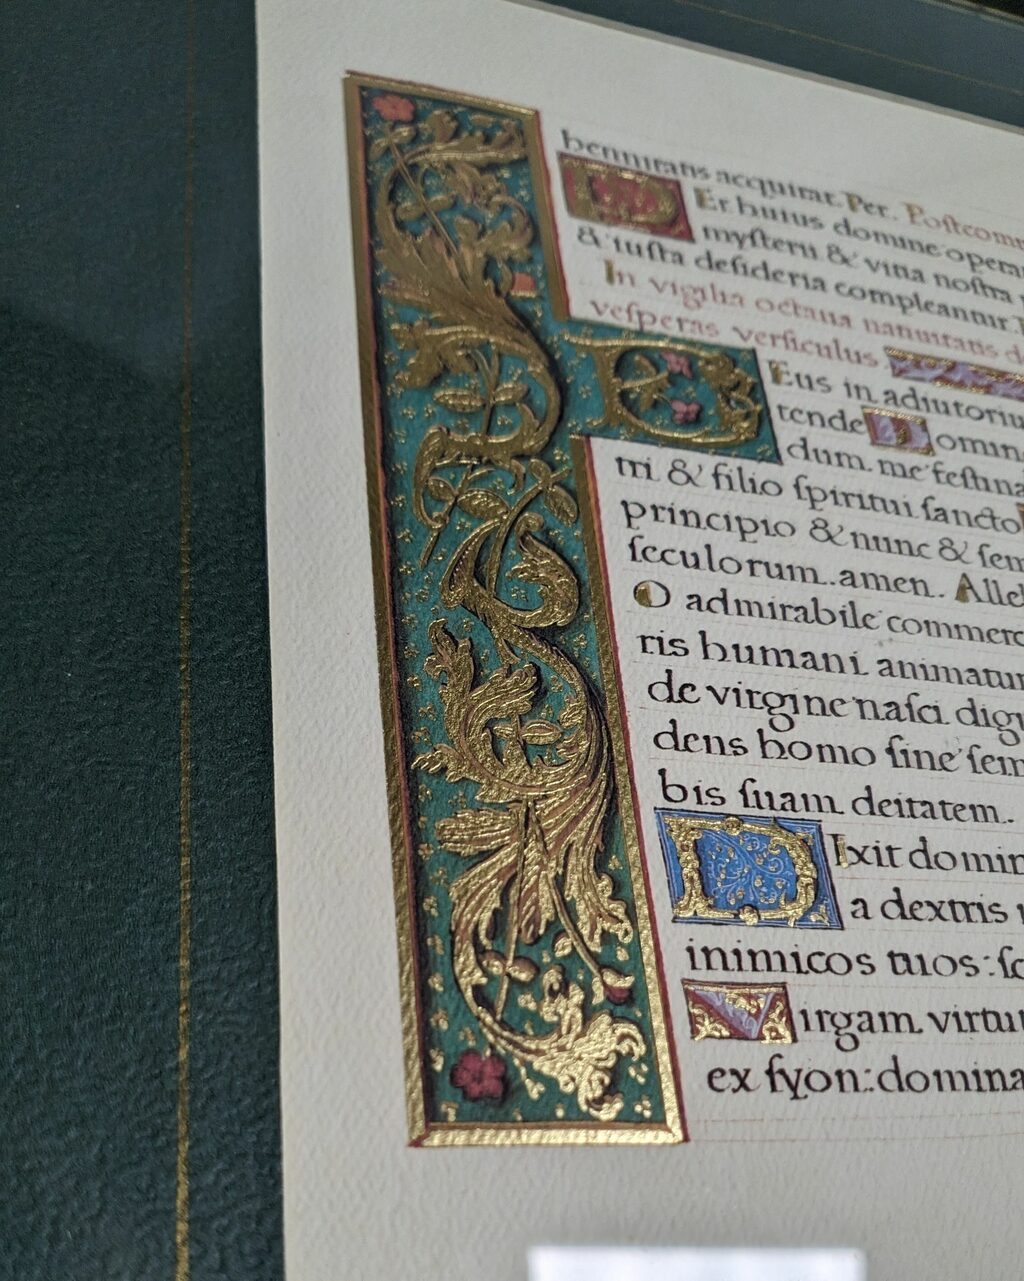 acquirat. Per. Postcom
Er huius domine opera
mysterii & vitia nostra
& iusta desideria compleantur.
In vigilia octaua natiuitatis d
vesperas versiculus
DEus in adiutoriu
tende Domin
dum. me festina
tri & filio spiritui sancto
principio & nunc & sem
seculorum. amen. Allel
O admirabile commerc
ris humani animatu
de virgine nasci dig
dens homo sine sem
bis suam deitatem.
DIxit domin
a dextris
inimicos tuos: sc
Virgam virtut
ex syon: domina